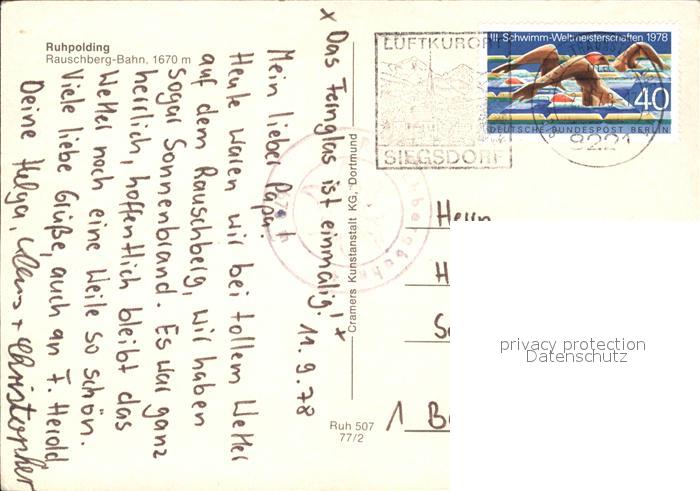 Ruhpolding
Rauschberg-Bahn, 1670 m
x Das Fernglas ist einmalig! x
11.9.78
Mein lieber Papa!
Heute waren wir bei tollem Wetter
auf dem Rauschberg, wir haben
sogar Sonnenbrand. Es war ganz
herrlich, hoffentlich bleibt das
Wetter noch eine Weile so schön.
Viele liebe Grüße, auch an F. Herold
Deine Helga, Klaus + Christopher
Cramers Kunstanstalt KG, Dortmund
Ruh 507
77/2
LUFTKURORT
SIEGSDORF
III. Schwimm-Weltmeisterschaften 1978
40
DEUTSCHE BUNDESPOST BERLIN
8221
Herrn
H
1 B
privacy protection
Datenschutz